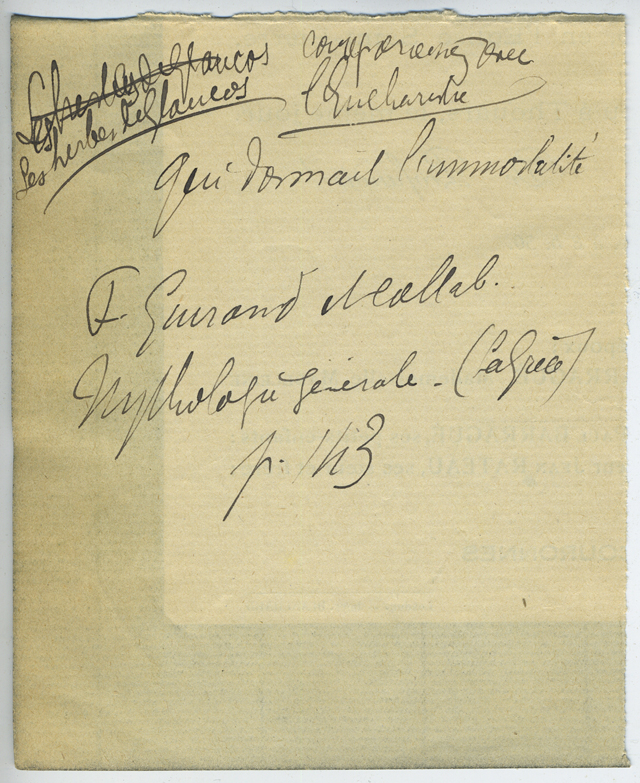 Les herbes de Glaucos
Les herbes de Glaucos
comparaison avec
l'Eucharistie
qui donnait l'immortalité
F. Guirand et collab.
Mythologie générale - (la Grèce)
p. 143